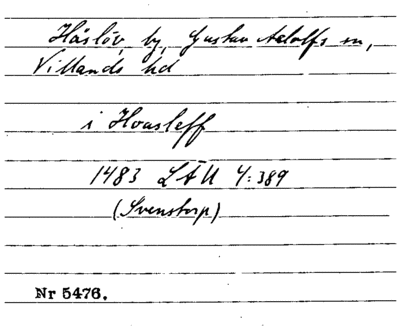 Håslöv, by, Gustav Adolfs sn,
Villands hd
i Hoasleff
1483 LÄU 4:389
(Svenstorp)
Nr 5476.